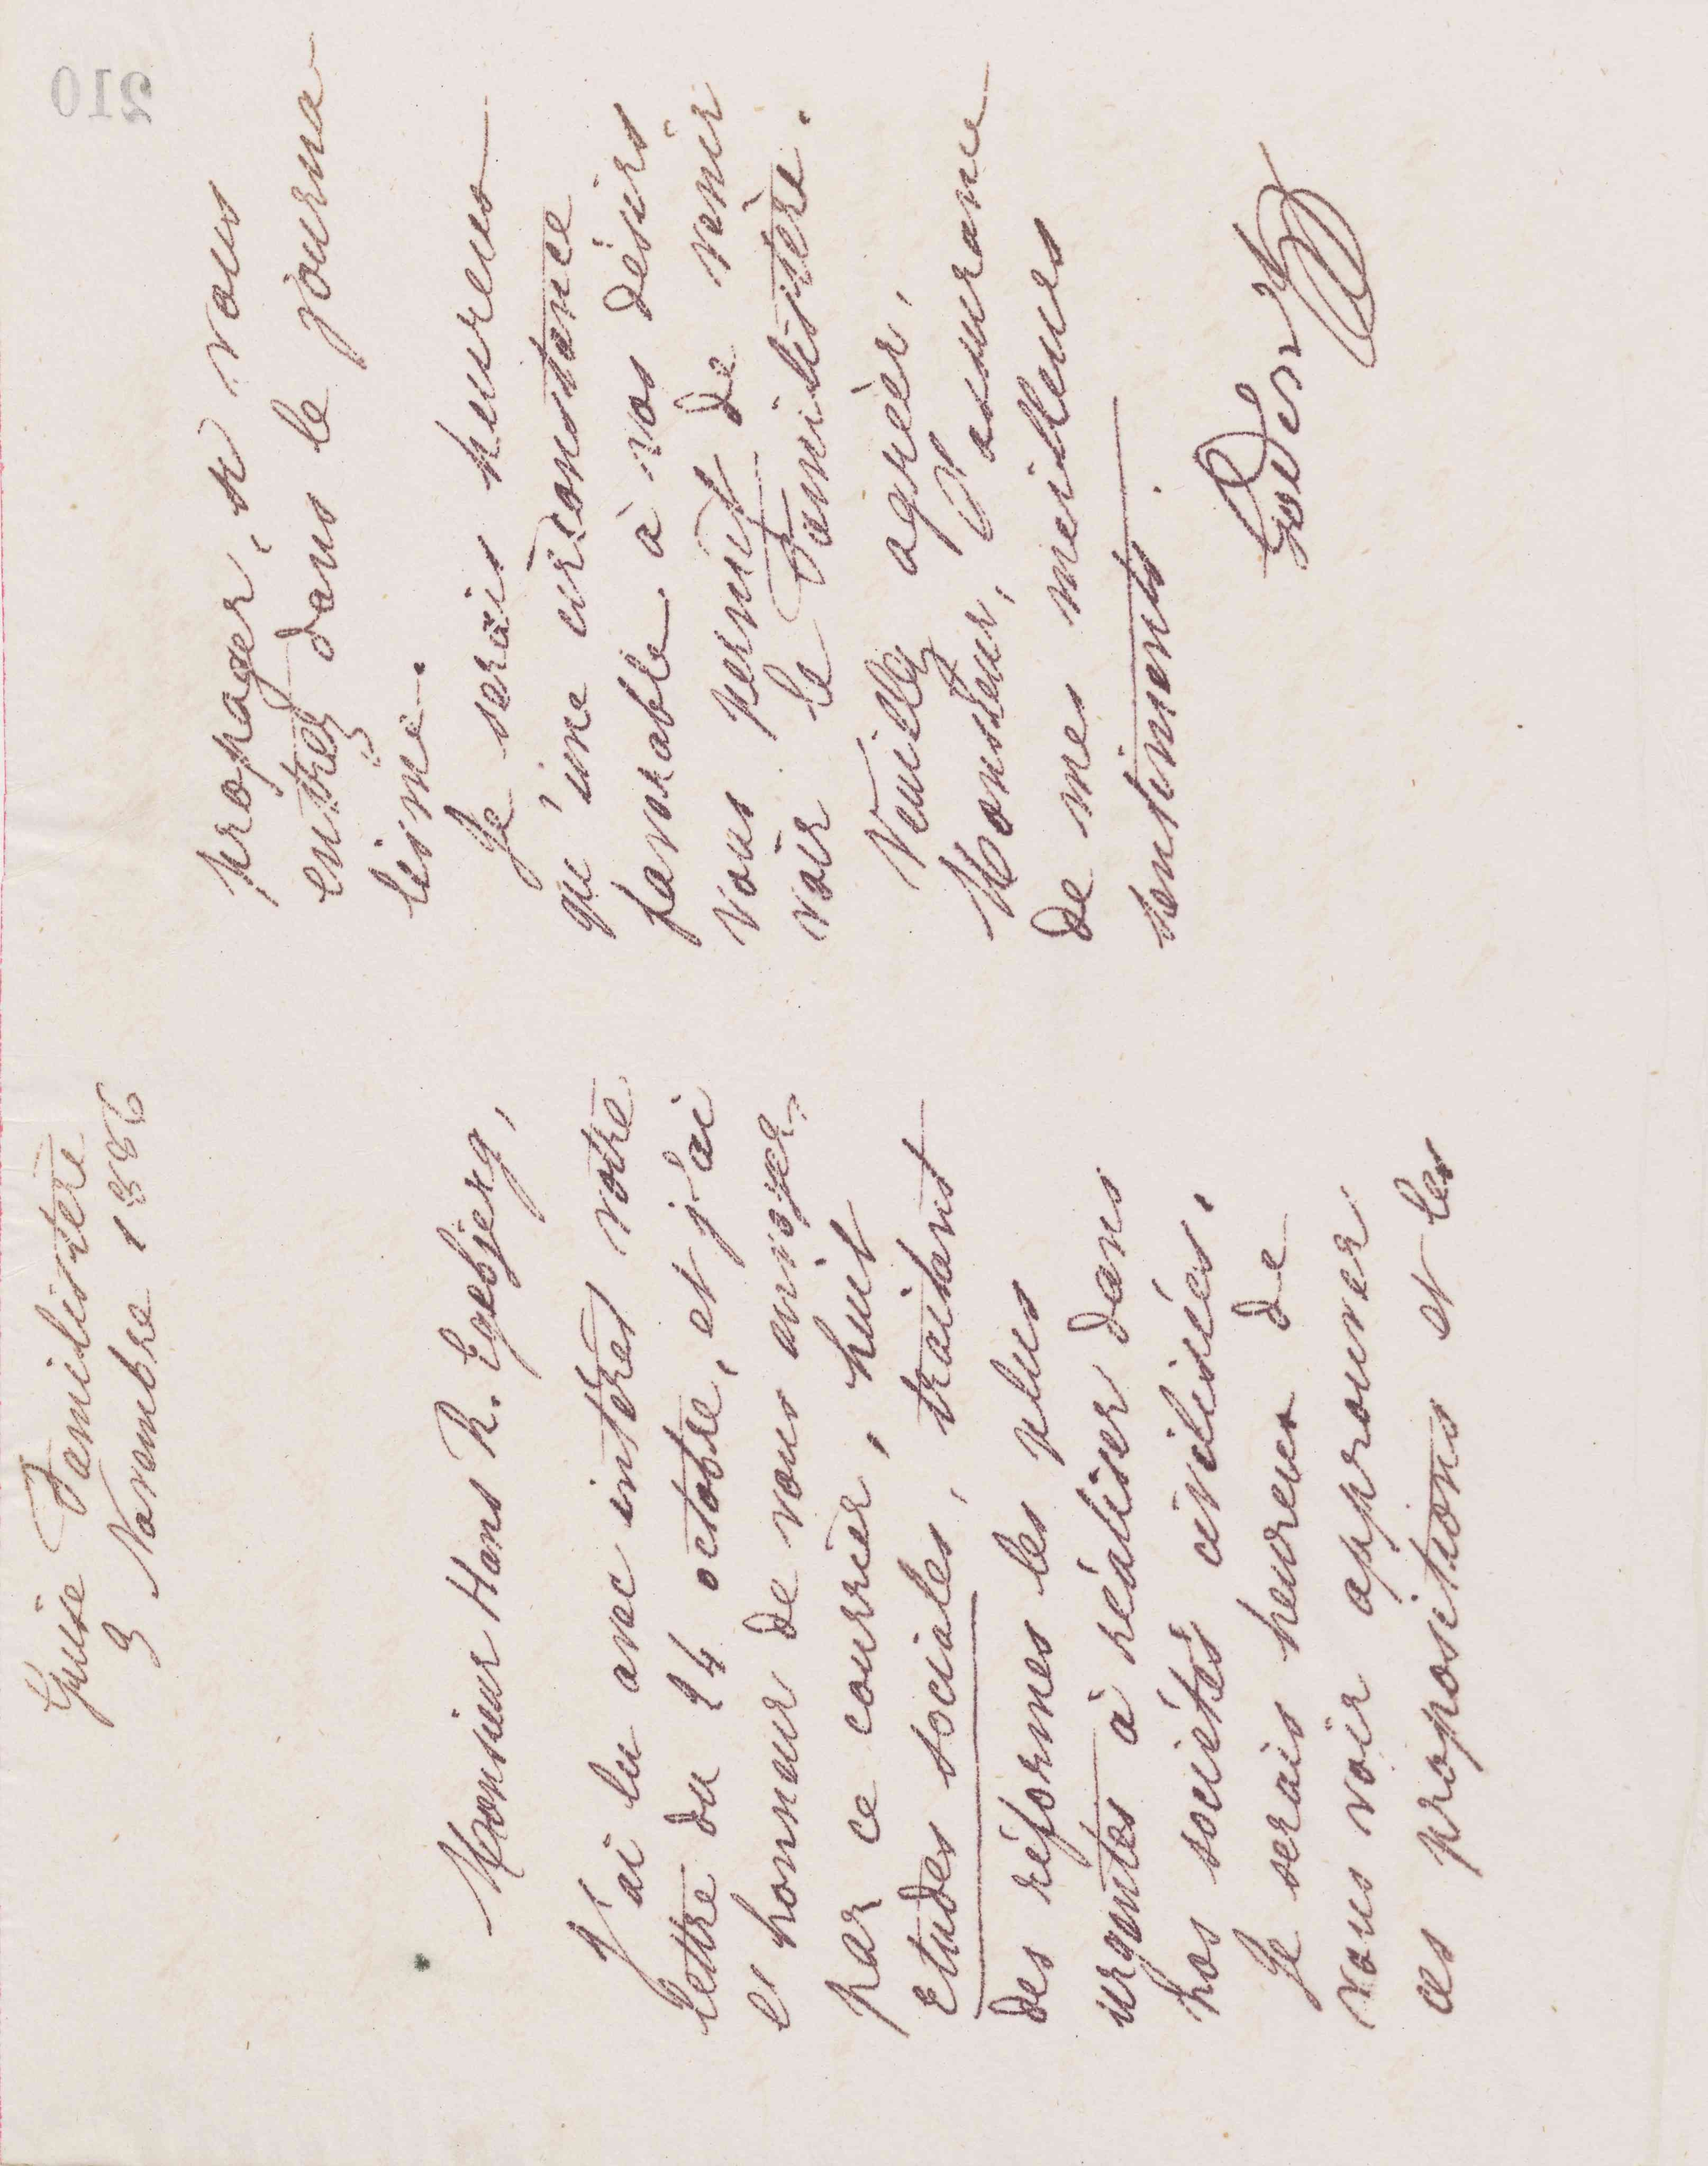 210
Guise Familistère
3 Novembre 1886
Monsieur Hans R. Egebjerg,
J'ai lu avec intérêt votre
lettre du 24 octobre, et j'ai
l'honneur de vous envoyer,
par ce courrier, huit
Etudes sociales, traitant
des réformes les plus
urgentes à réaliser dans
nos sociétés civilisées.
Je serais heureux de
vous voir approuver
ces propositions et les
propager, si vous
entrez dans le journa
lisme.
Je serais heureux
qu'une circonstance
favorable à vos désirs
vous permit de venir
voir le Familistère.
Veuillez agréer,
Monsieur, l'assurance
de mes meilleurs
sentiments.
Godin